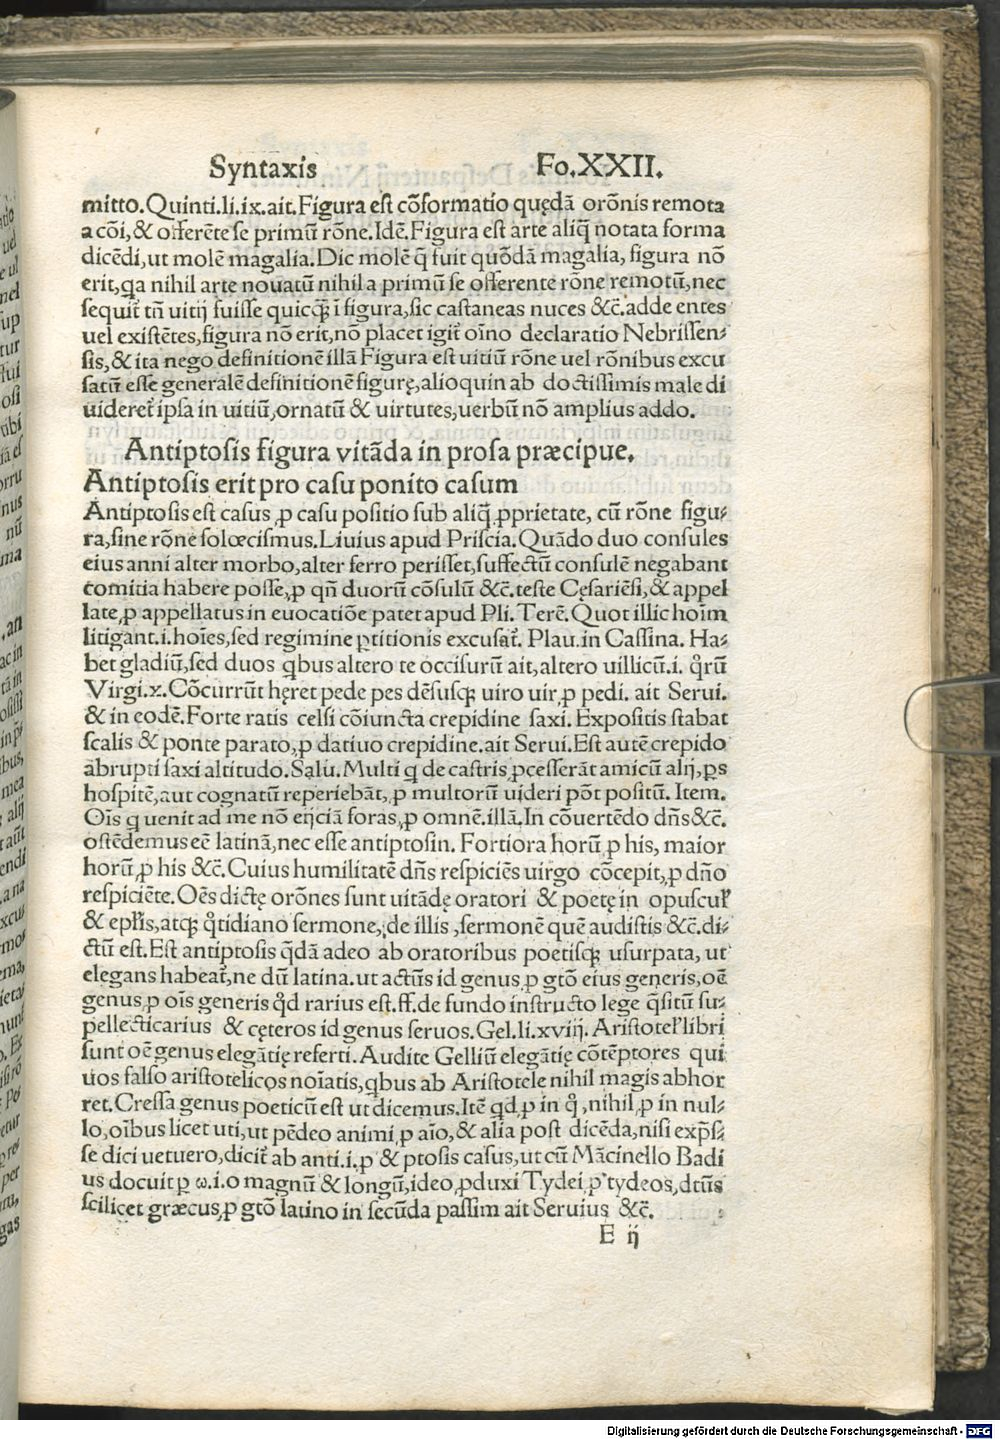 Syntaxis Fo.XXII.
mitto.Quinti.li.ix.ait.Figura eſt cõformatio quędã orõnis remota
a cõi,& offerẽte ſe primũ rõne.Idẽ.Figura eſt arte aliq̃ notata forma
dicẽdi,ut molẽ magalia.Dic molẽ q̃ fuit quõdã magalia, figura nõ
erit,qa nihil arte nouatũ nihil a primũ ſe offerente rõne remotũ,nec
ſequit̃ tñ uitij fuiſſe quicq̃ȝ ĩ figura,ſic caſtaneas nuces &c̃.adde entes
uel exiſtẽtes,figura nõ erit,nõ placet igit̃ oĩno declaratio Nebriſſen⸗
ſis,& ita nego definitionẽ illã Figura eſt uitiũ rõne uel rõnibus excu
ſatũ eſſe generalẽ definitionẽ figurę,alioquin ab doctiſſimis male di
uideret̃ ipſa in uitiũ,ornatũ & uirtutes,uerbũ nõ amplius addo.
Antiptoſis figura vitãda in proſa præcipue.
Antiptoſis erit pro caſu ponito caſum
Antiptoſis eſt caſus ꝓ caſu poſitio ſub aliq̃ ꝓprietate, cũ rõne figu⸗
ra,ſine rõne ſolœciſmus.Liuius apud Priſcia.Quãdo duo conſules
eius anni alter morbo,alter ferro periſſet,ſuffectũ conſulẽ negabant
comitia habere poſſe,ꝓ qñ duorũ cõſulũ &c̃.teſte Cęſariẽſi,& appel
late,ꝓ appellatus in euocatiõe patet apud Pli. Terẽ. Quot illic hoĩm
litigant.i.hoĩes,ſed regimine ꝑtitionis excuſat̃. Plau.in Caſſina. Ha⸗
bet gladiũ,ſed duos qbus altero te occiſurũ ait,altero uillicũ.i. q̊rũ
Virgi.x.Cõcurrũt hęret pede pes dẽſuſqȝ uiro uir,ꝓ pedi. ait Serui.
& in eodẽ.Forte ratis celſi cõiuncta crepidine ſaxi.Expoſitis ſtabat
ſcalis & ponte parato,ꝓ datiuo crepidine.ait Serui.Eſt autẽ crepido
abrupti ſaxi altitudo.Salu.Multi q de caſtris ꝓceſſerãt amicũ alij,ꝑs
hoſpitẽ,aut cognatũ reperiebãt,ꝓ multorũ uideri põt poſitũ. Item.
Oĩs q uenit ad me nõ eijciã foras,ꝓ omnẽ.illã,In cõuertẽdo dñs &c̃.
oſtẽdemus eẽ latinã,nec eſſe antiptoſin. Fortiora horũ ꝓ his, maior
horũ,ꝓ his &c̃.Cuius humilitatẽ dñs reſpiciẽs uirgo cõcepit,ꝓ dño
reſpiciẽte.Oẽs dictę orõnes ſunt uitãdę oratori & poetę in opuſcuł
& epłis,atqȝ q̊tidiano ſermone, de illis ,ſermonẽ quẽ audiſtis &c̃.di⸗
ctũ eſt.Eſt antiptoſis q̃dã adeo ab oratoribus poetiſqȝ uſurpata, ut
elegans habeat̃,ne dũ latina.ut actũs id genus ꝓ gtõ eius generis,oẽ
genus ꝓ oĩs generis q̊d rarius eſt.ff.de fundo inſtructo lege q̃ſitũ ſu⸗
pellecticarius & cęteros id genus ſeruos.Gel.li.xviij. Ariſtoteł libri
ſunt oẽ genus elegãtię referti.Audite Gelliũ elegãtię cõtẽptores qui
uos falſo ariſtotelicos noĩatis,qbus ab Ariſtotele nihil magis abhor
ret.Creſſa genus poeticũ eſt ut dicemus.Itẽ qd ꝓ in q̊ ,nihil ꝓ in nul⸗
lo,oĩbus licet uti,ut pẽdeo animi ꝓ aĩo,& alia poſt dicẽda,niſi exp̃ſ⸗
ſe dici uetuero,dicit̃ ab anti.i.ꝓ & ptoſis caſus,ut cũ Mãcinello Badi
us docuit ꝑ ω.i.o magnũ & longũ,ideo ꝓduxi Tydei ꝓ tydeos,dtũs
ſcilicet græcus,ꝓ gtõ latino in ſecũda paſſim ait Seruius &c̃.
E ij
Digitalisierung gefördert durch die Deutsche Forschungsgemeinschaft - DFG